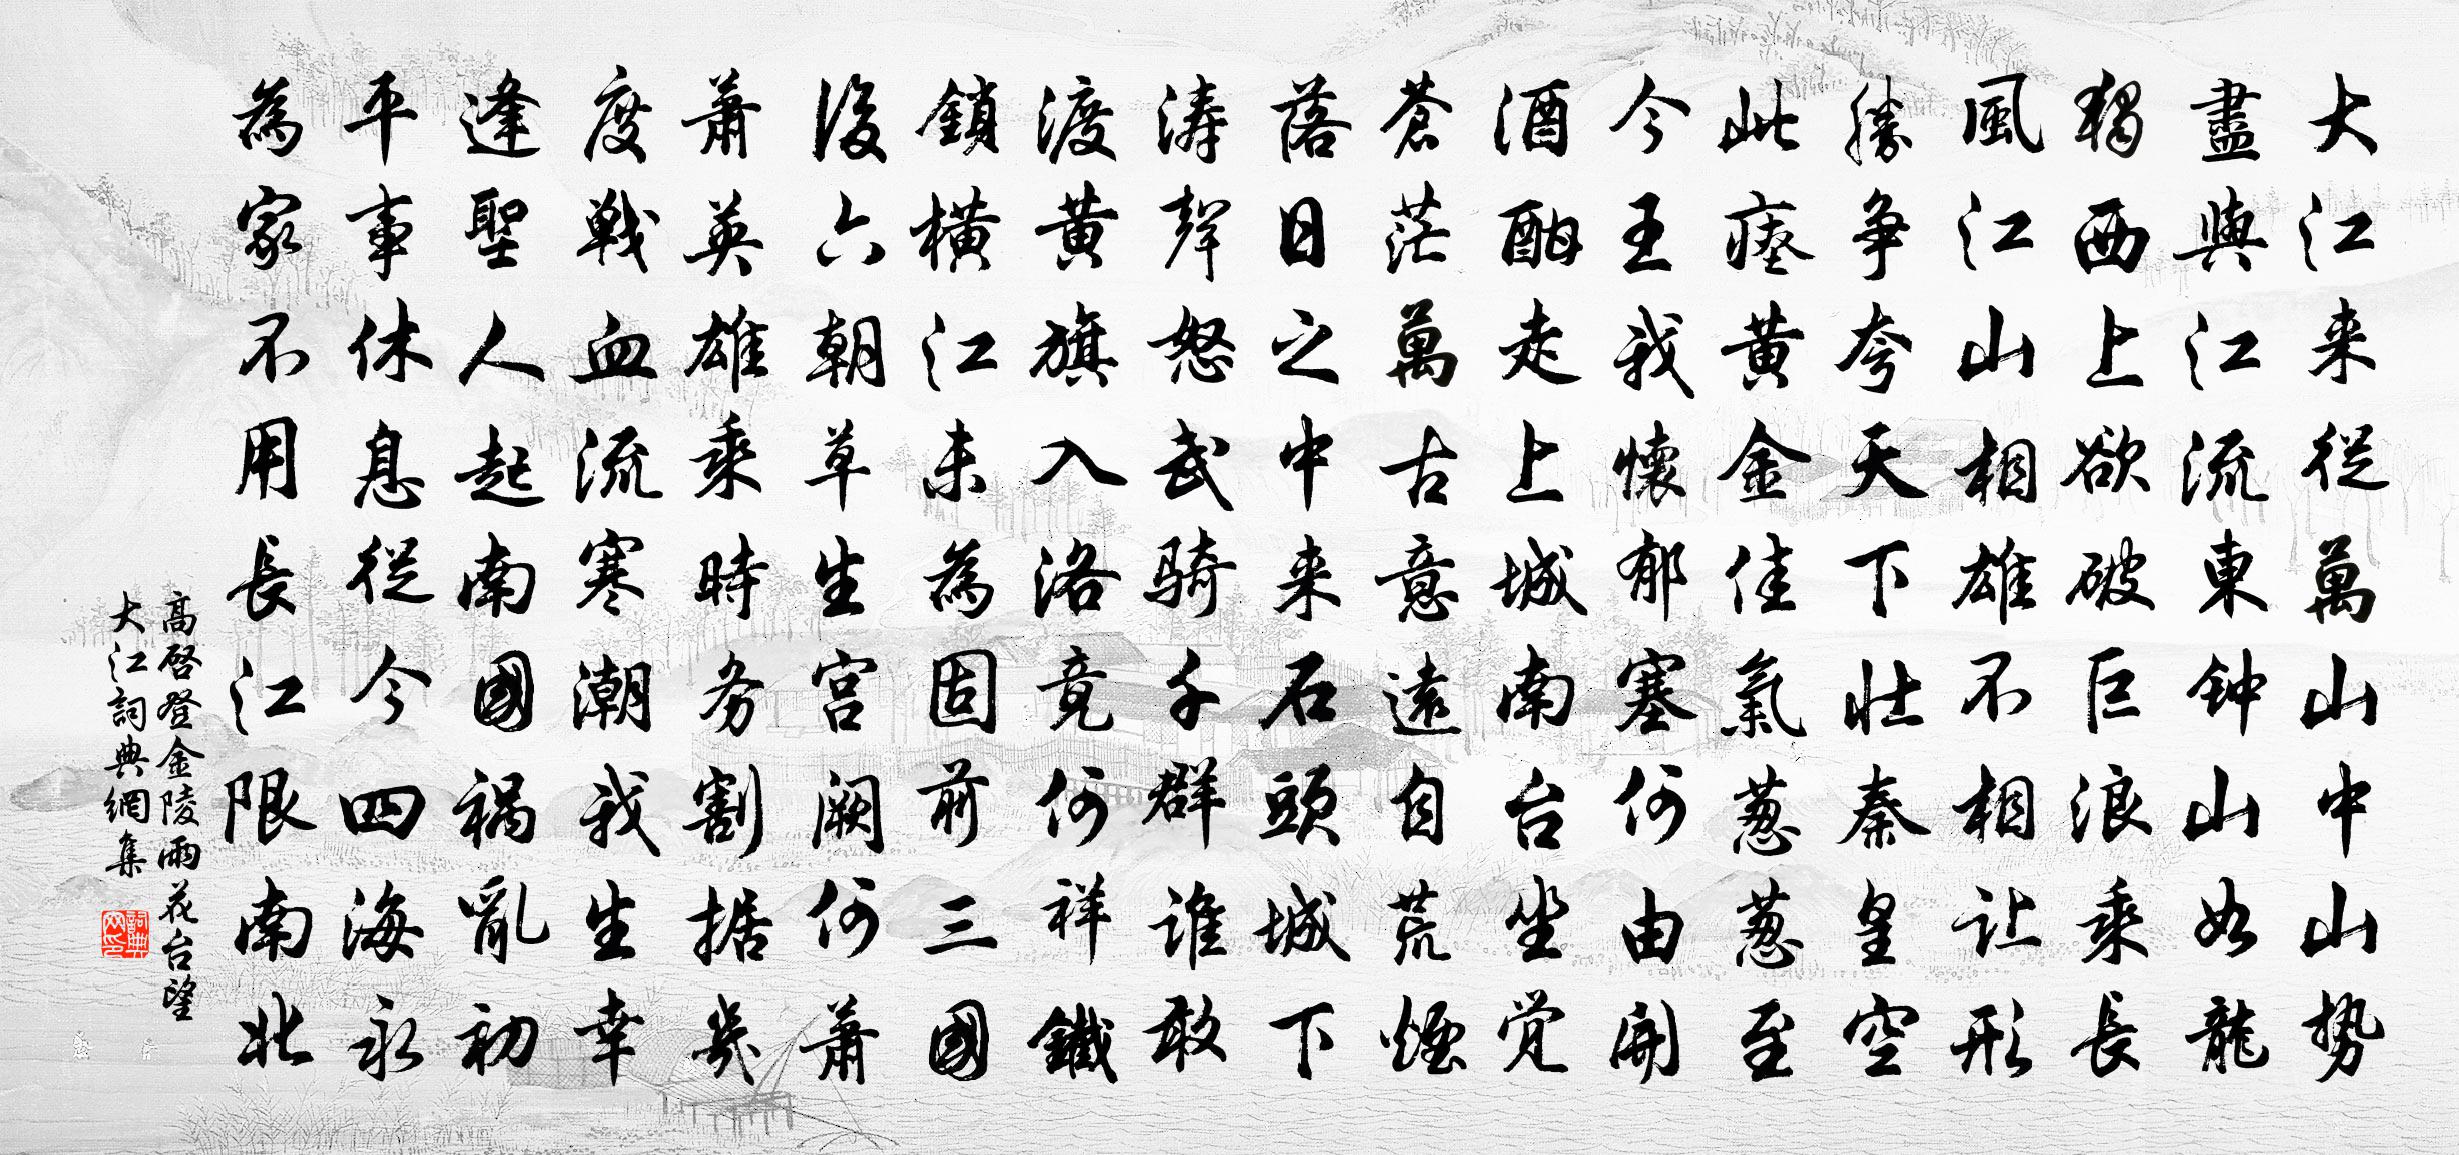 大江来從萬山中山勢
盡與江流東钟山如龍
獨西上欲破巨浪乘長
風江山相雄不相让形
勝争夸天下壮秦皇空
此瘗黄金佳氣葱葱至
今王我懷郁塞何由開
酒酣走上城南台坐觉
蒼茫萬古意遠自荒煙
落日之中来石頭城下
涛聲怒武骑千群谁敢
渡黄旗入洛竟何祥鐵
鎖横江未為固前三國
後六朝草生宫阙何蕭
蕭英雄乘時务割据幾
度戰血流寒潮我生幸
逢聖人起南國祸亂初
平事休息從今四海永
為家不用長江限南北
高啓登金陵雨花台望
大江詞典網集
詞典网印